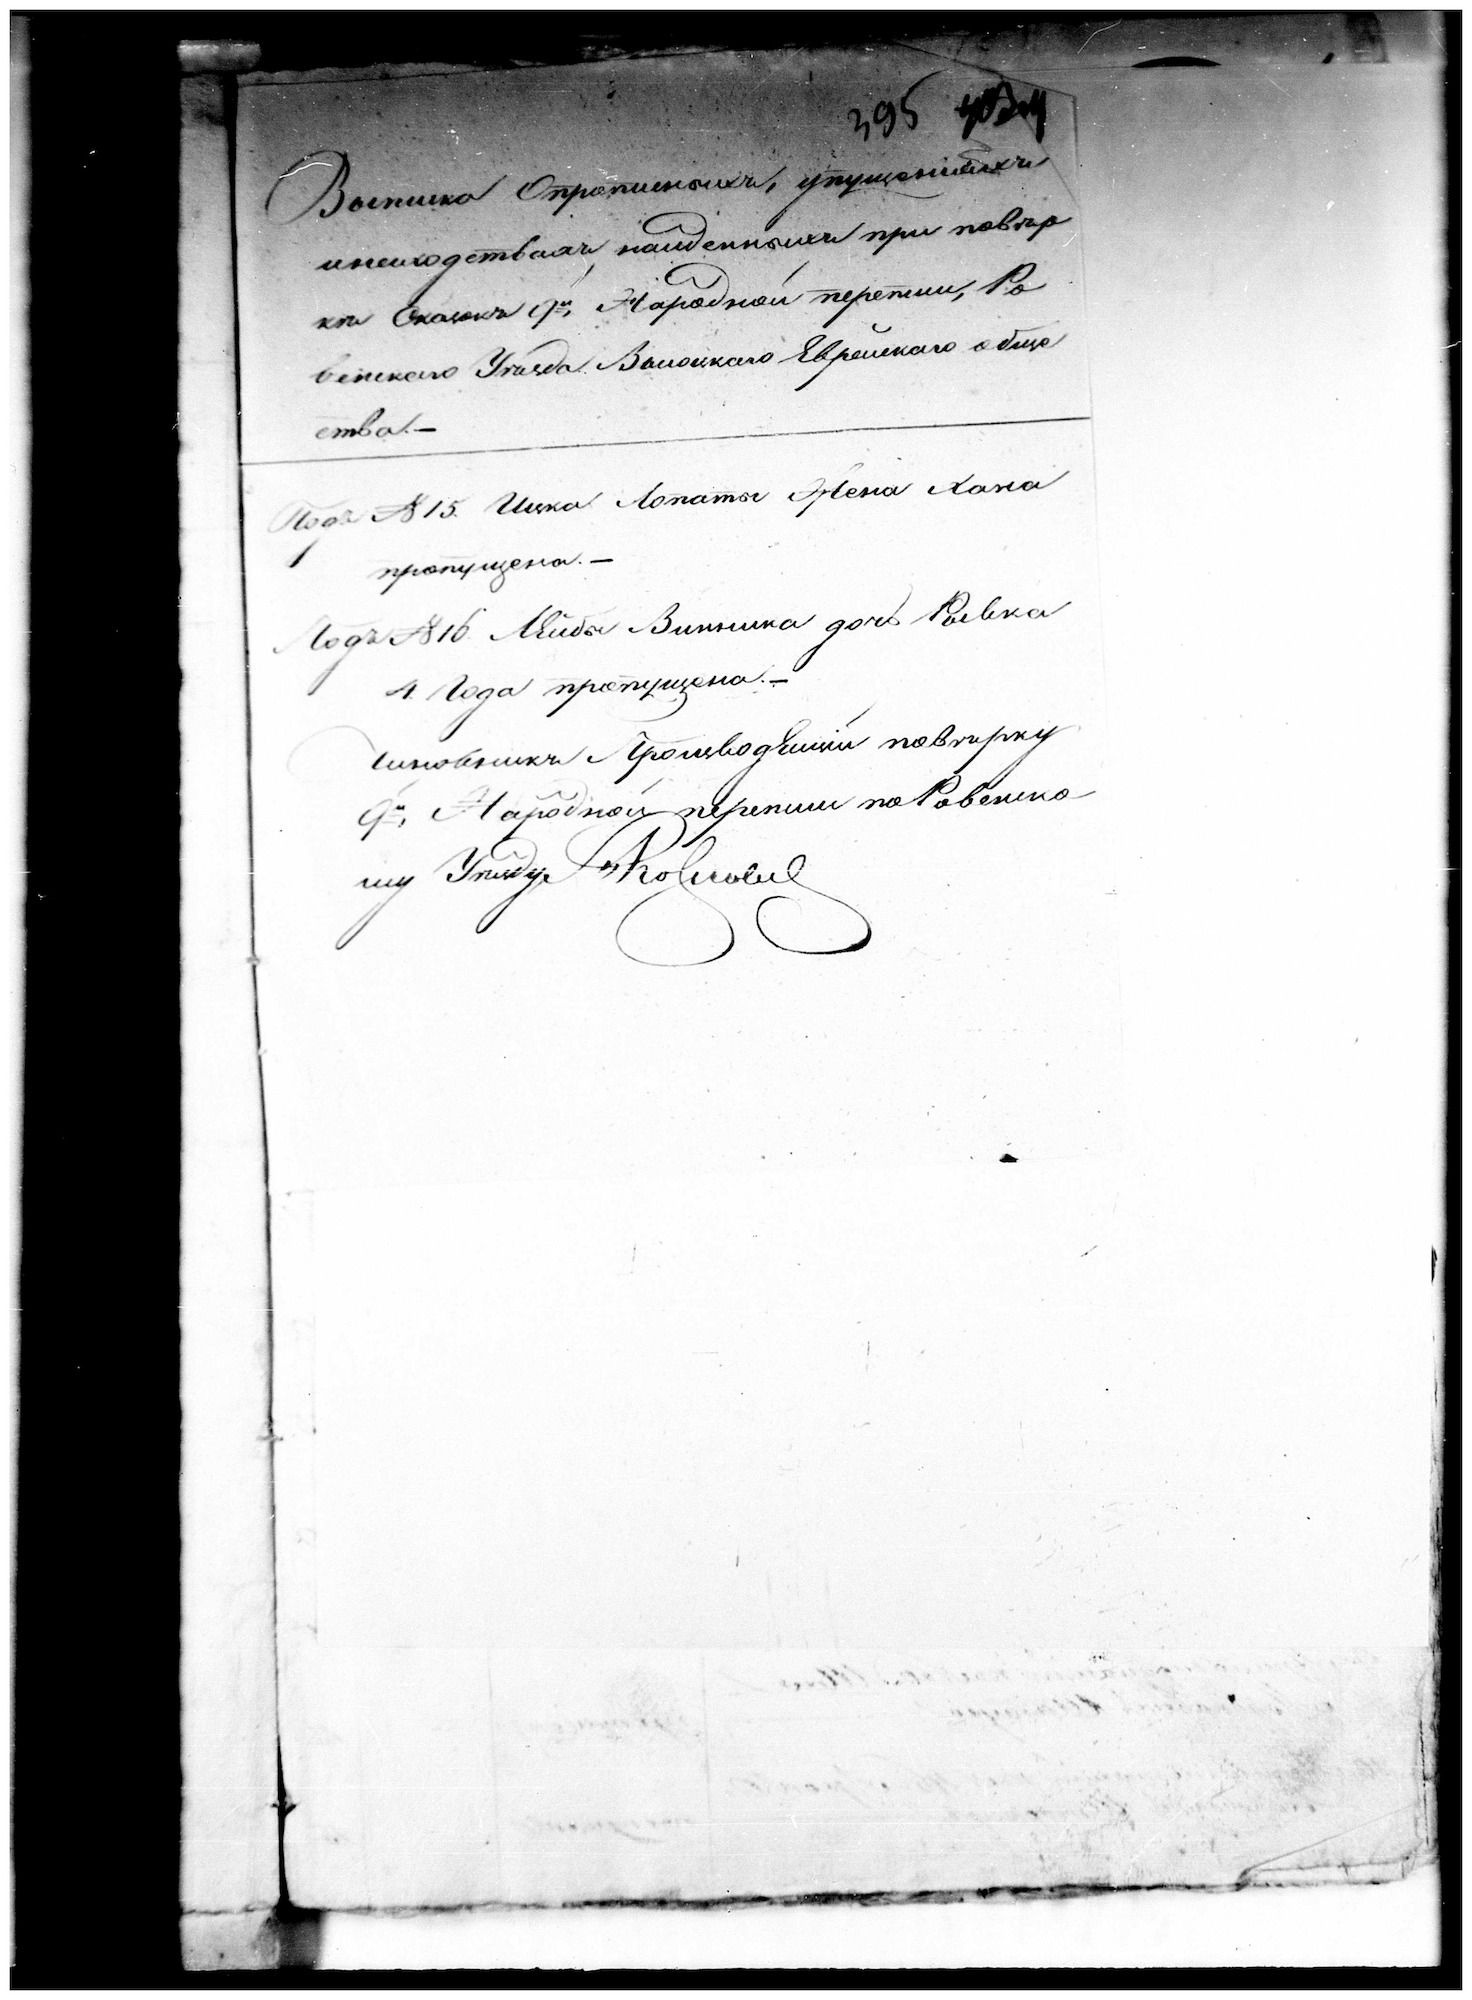 395
Выписка Опрописныхъ, упущенныхъ
инесходствахъ найденныхъ при повѣр
кѣ Сказокъ 9й, Народной переписи, Ро
венскаго Уѣзда Высоцкаго Еврейскаго обще
ства.—
Подъ №15. Ицка Лопаты Жена Хана
пропущена.—
Подъ №16. Лейбы Винника дочь Рывка
4 Года пропущена.—
Чиновникъ Производившій повѣрку
9й, Народной переписи по Ровенско
му Уѣзду